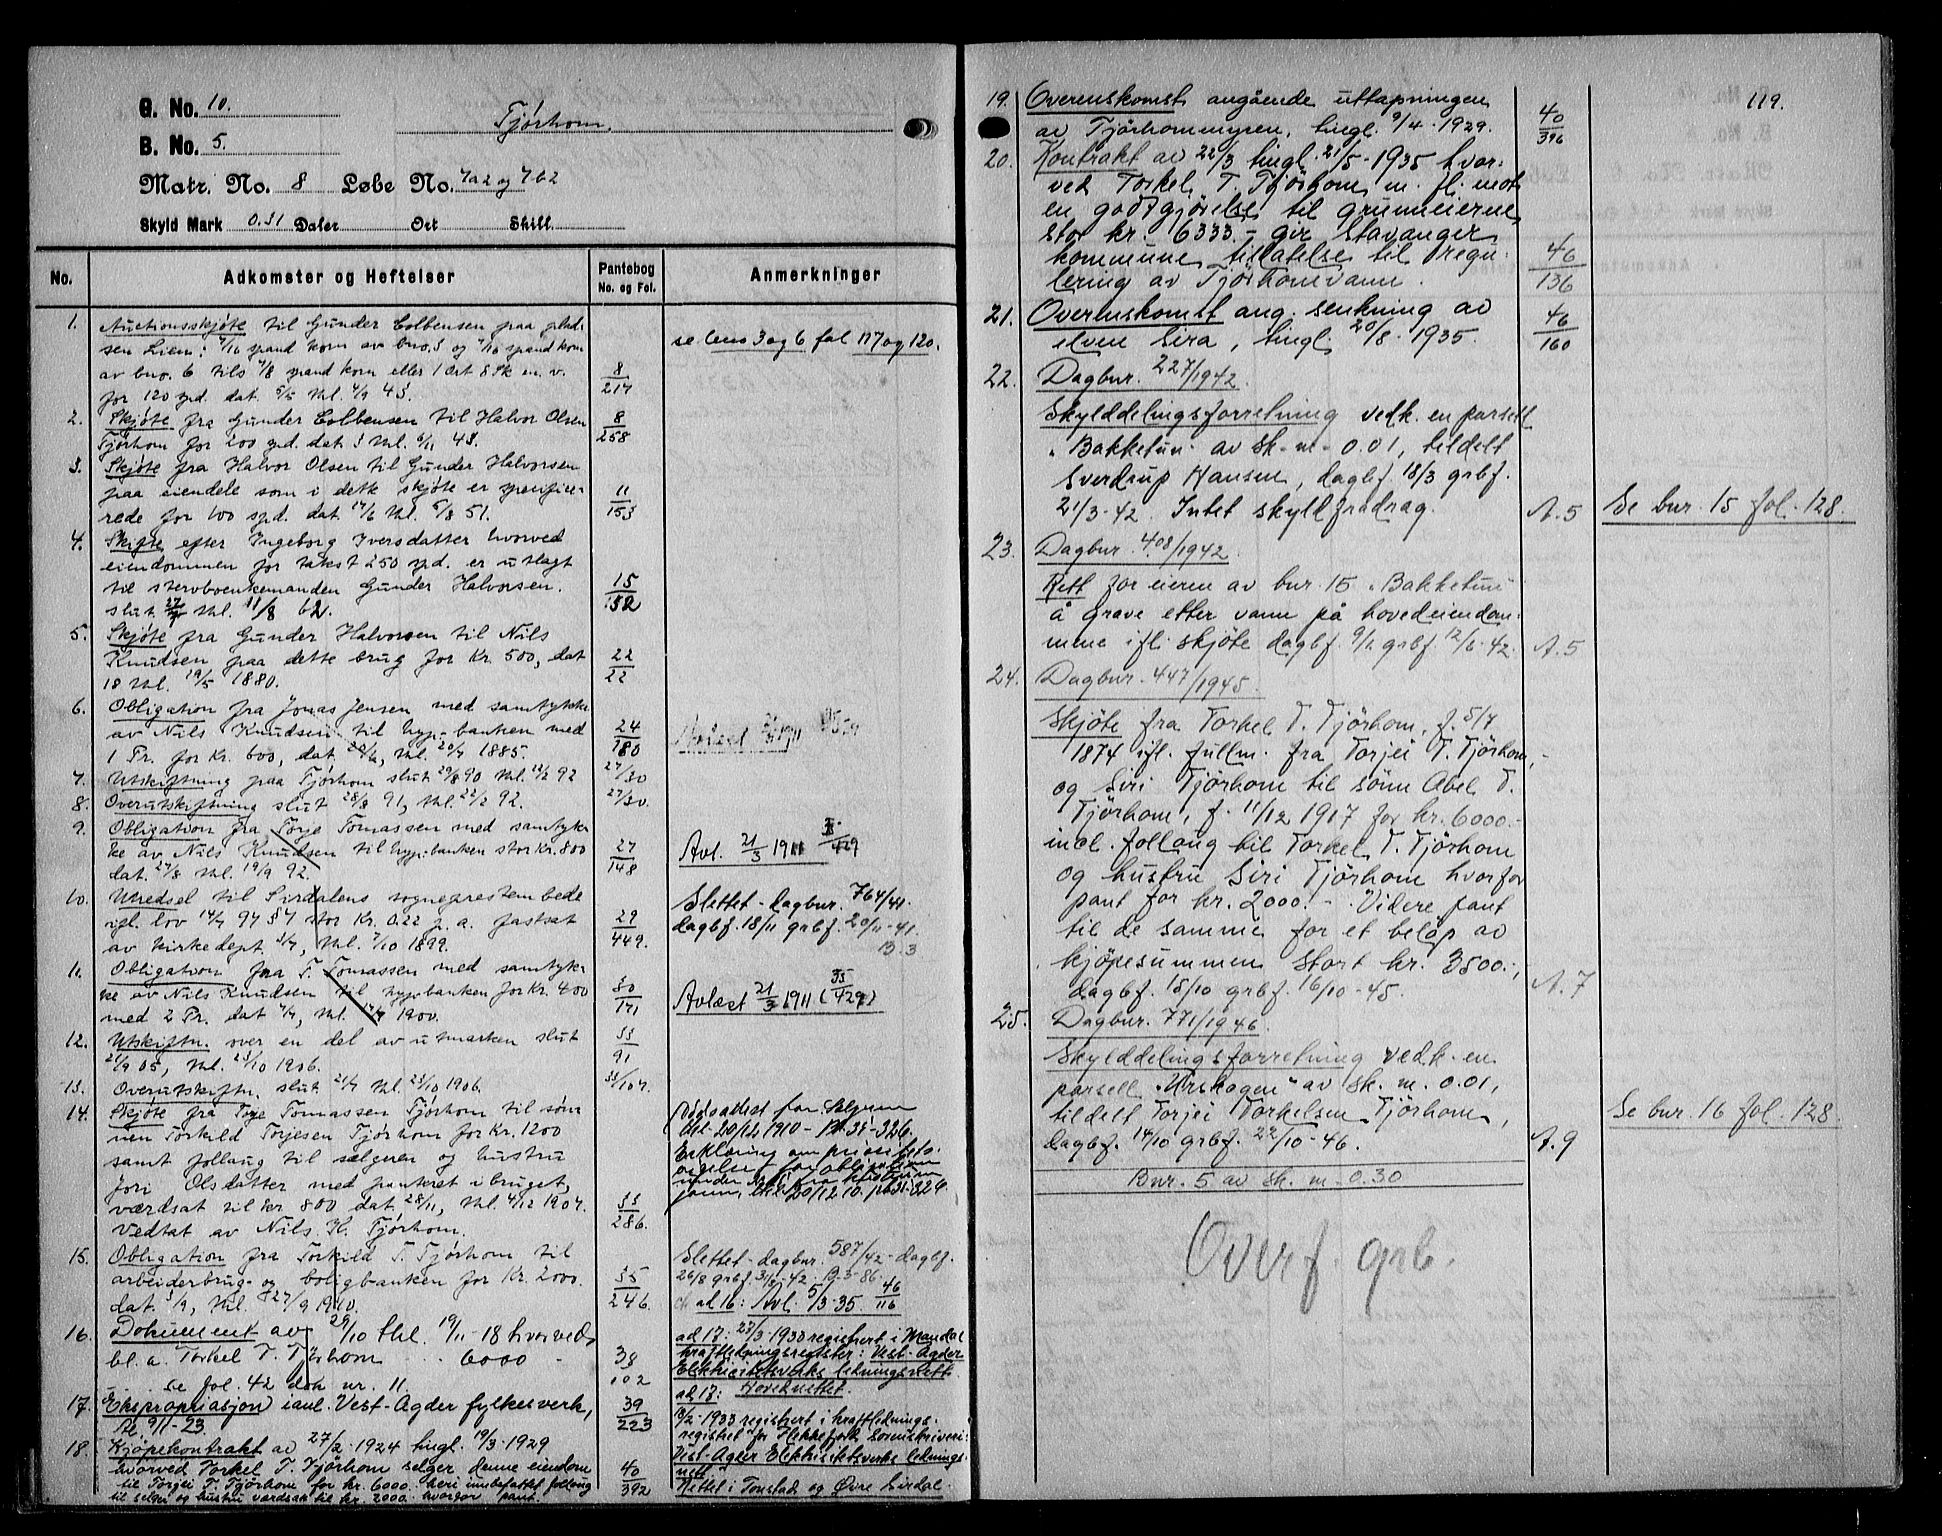 G. No. 10.
B. No. 5.
Tjørhom.
Matr. No. 8 Løbe No. 7a2 og 7b2
Skyld Mark 0.31 Daler Ort Skill.
No. Adkomster og Heftelser Pantebog No. og Fol. Anmerkninger
1. Auctionsskjøte til Gunder Colbensen paa plad-
sen Lien: 7/16 spand korn av bno. 3 og 7/16 spand korn
av bno. 6 tils 7/8 spand korn eller 1 Ort 8 Sk en. v. 8/217
for 120 spd. dat. 6/5 thl. 4/9 43.
se bno 3 og 6 fol 117 og 120.
2. Skjøte fra Gunder Colbensen til Halvor Olsen 8/258
Tjørhom for 200 spd. dat. thl. 6/11 43.
3. Skjøte fra Halvor Olsen til Gunder Halvorsen
paa eiendele som i dette skjøte er specifice- 11/153
rede for 100 spd. dat. 17/6 thl. 6/8 51.
4. Skifte efter Ingeborg Iversdatter hvorved
eiendommen for takst 250 spd. er utlagt
til stervboenkemanden Gunder Halvorsen. 15/132
slut thl. 11/8 62.
5. Skjøte fra Gunder Halvorsen til Nils
Knudsen paa dette brug for Kr. 500, dat 22/22
18 thl. 19/5 1880.
6. Obligation fra Jonas Jensen med samtykke
av Nils Knudsen til hyp.-banken med 24/180
1 Pr. for Kr. 600, dat. thl. 20/7 1885.
7. Utskiftning paa Tjørhom slut 29/8 90 thl. 12/2 92 27/30
8. Overutskiftning slut 28/8 91, thl. 22/2 92. 27/30.
9. Obligation fra Torje Tomassen med samtyk-
ke av Nils Knudsen til hyp.-banken stor Kr. 800 27/148
dat. 27/8 thl. 19/9 92.
Avl. 21/3 1911
10. Utredsel til Sirdalens sogneprestembede
ifl. lov 14/7 97 § 7 stor Kr. 0.22 p. a. fastsat 29/449.
av kirkedept. thl. 7/10 1899.
Slettet - dagbnr. 764/41.
dagbf. 18/11 grbf. 20/11-41.
B. 3
11. Obligation fra T. Tomassen med samtyk-
ke av Nils Knudsen til hyp.banken for Kr. 400 30/171
med 2 Pr. dat 4/7, thl. 1900.
Avlæst 21/3 1911 (35/429)
12. Utskiftn. over en del av utmarken slut 33/91
21/9 05, thl. 23/10 1906.
13. Overutskiftn. slut 21/7 thl. 23/10 1906. 33/107.
14. Skjøte fra Torje Tomassen Tjørhom til søn-
nen Torkild Torjesen Tjørhom for Kr. 1200
samt follaug til sælgeren og hustru
Jori Olsdatter med panteret i bruget,
værdsat til kr 800 dat. 28/11, thl. 4/12 1907. 33/286.
Vedtat av Nils K. Tjørhom.
Dødsattest for Sælgeren
thl 20/12 1910 - Pb. 35-326.
Erklæring om prioritets-
15. Obligation fra Torkild T. Tjørhom til
arbeiderbrug- og boligbanken for Kr. 2000. 35/246.
dat. 3/9, thl. 27/9 1910.
Slettet - dagbnr. 587/42 - dagbf.
26/8 grbf. 31/8-42. B.3-86.
ad 16: Avl. 5/3-35 46/116
16. Dokument av 29/10 thl. 19/11-18 hvorved
bl. a. Torkel T. Tjørhom - 6000 - 38/102
se fol. 42 dok nr. 11.
ad 17: 27/3-1933 registrert i Mandal
kraftledningsregister: Vest-Agder
Elektricitetsverks ledningsnett
Hovednettet.
17. Ekspropriasjon i anl. Vest-Agder fylkesverk, 39/223
thl. 9/11-23.
ad 17:
13/2-1933 registrert i kraftlednings-
registret for Flekkefjord Sorenskriveri:
Vest-Agder Elektrisitetsverks lednings-
nett
Nettet i Tonstad og Øvre Sirdal.
18. Kjøpekontrakt av 27/2-1924 tingl. 19/3-1929
hvorved Torkel T. Tjørhom selger denne eiendom 40/392
til Torjei T. Tjørhom for kr. 6000. heri innbefattet follaug
til selger og hustru verdsatt til kr. 2000. hvorfor pant.
119.
19. Overenskomst angående uttapningen
av Tjørhommyren, tingl. 9/4-1929. 40/396
20. Kontrakt av 22/3 tingl. 21/5-1935 hvor-
ved Torkel T. Tjörhom m. fl. mot
en godtgjörelse til grunneierne
stor kr. 6333.- gir Stavanger
kommune tillatelse til regu- 46/136
lering av Tjörhomvann.
21. Overenskomst ang. senkning av 46/160
elven Sira, tingl. 20/8-1935.
22. Dagbnr. 227/1942.
Skylddelingsforretning vedk. en parsell
"Bakketun" av sk.-m- 0.01, tildelt
Sverdrup Hansen, dagbf 18/3 grbf.
21/3-42. Intet skyldfradrag. A.5
Se bnr. 15 fol. 128.
23. Dagbnr. 408/1942.
Rett for eieren av bnr. 15 "Bakketun"
å grave etter vann på hovedeiendom-
mene ifl. skjöte dagbf. grbf. 12/6-42. A.5
24. Dagbnr. 447/1945.
Skjöte fra Torkel T. Tjörhom, f. 5/7
1874 ifl. fullm. fra Torjei T. Tjörhom,-
og Siri Tjörhom til sönn Abel T.
Tjörhom, f. 11/12 1917 for kr. 6000.-
incl. follaug til Torkel T. Tjörhom
og hustru Siri Tjörhom hvorfor
pant for kr. 2000.- Videre pant
til de samme for et belöp av
kjöpesummen stort kr. 3500.-,
dagbf. 15/10 grbf. 16/10-45. A.7
25. Dagbnr. 771/1946.
Skylddelingsforretning vedk. en
parsell "Urskogen" av sk. m. 0.01,
tildelt Torjei Torkelsen Tjörhom,
dagbf. 14/10 grbf. 22/10-46. A.9
Se bnr. 16 fol. 128.
Bnr. 5 av sk. m. 0.30
Overf. grb.